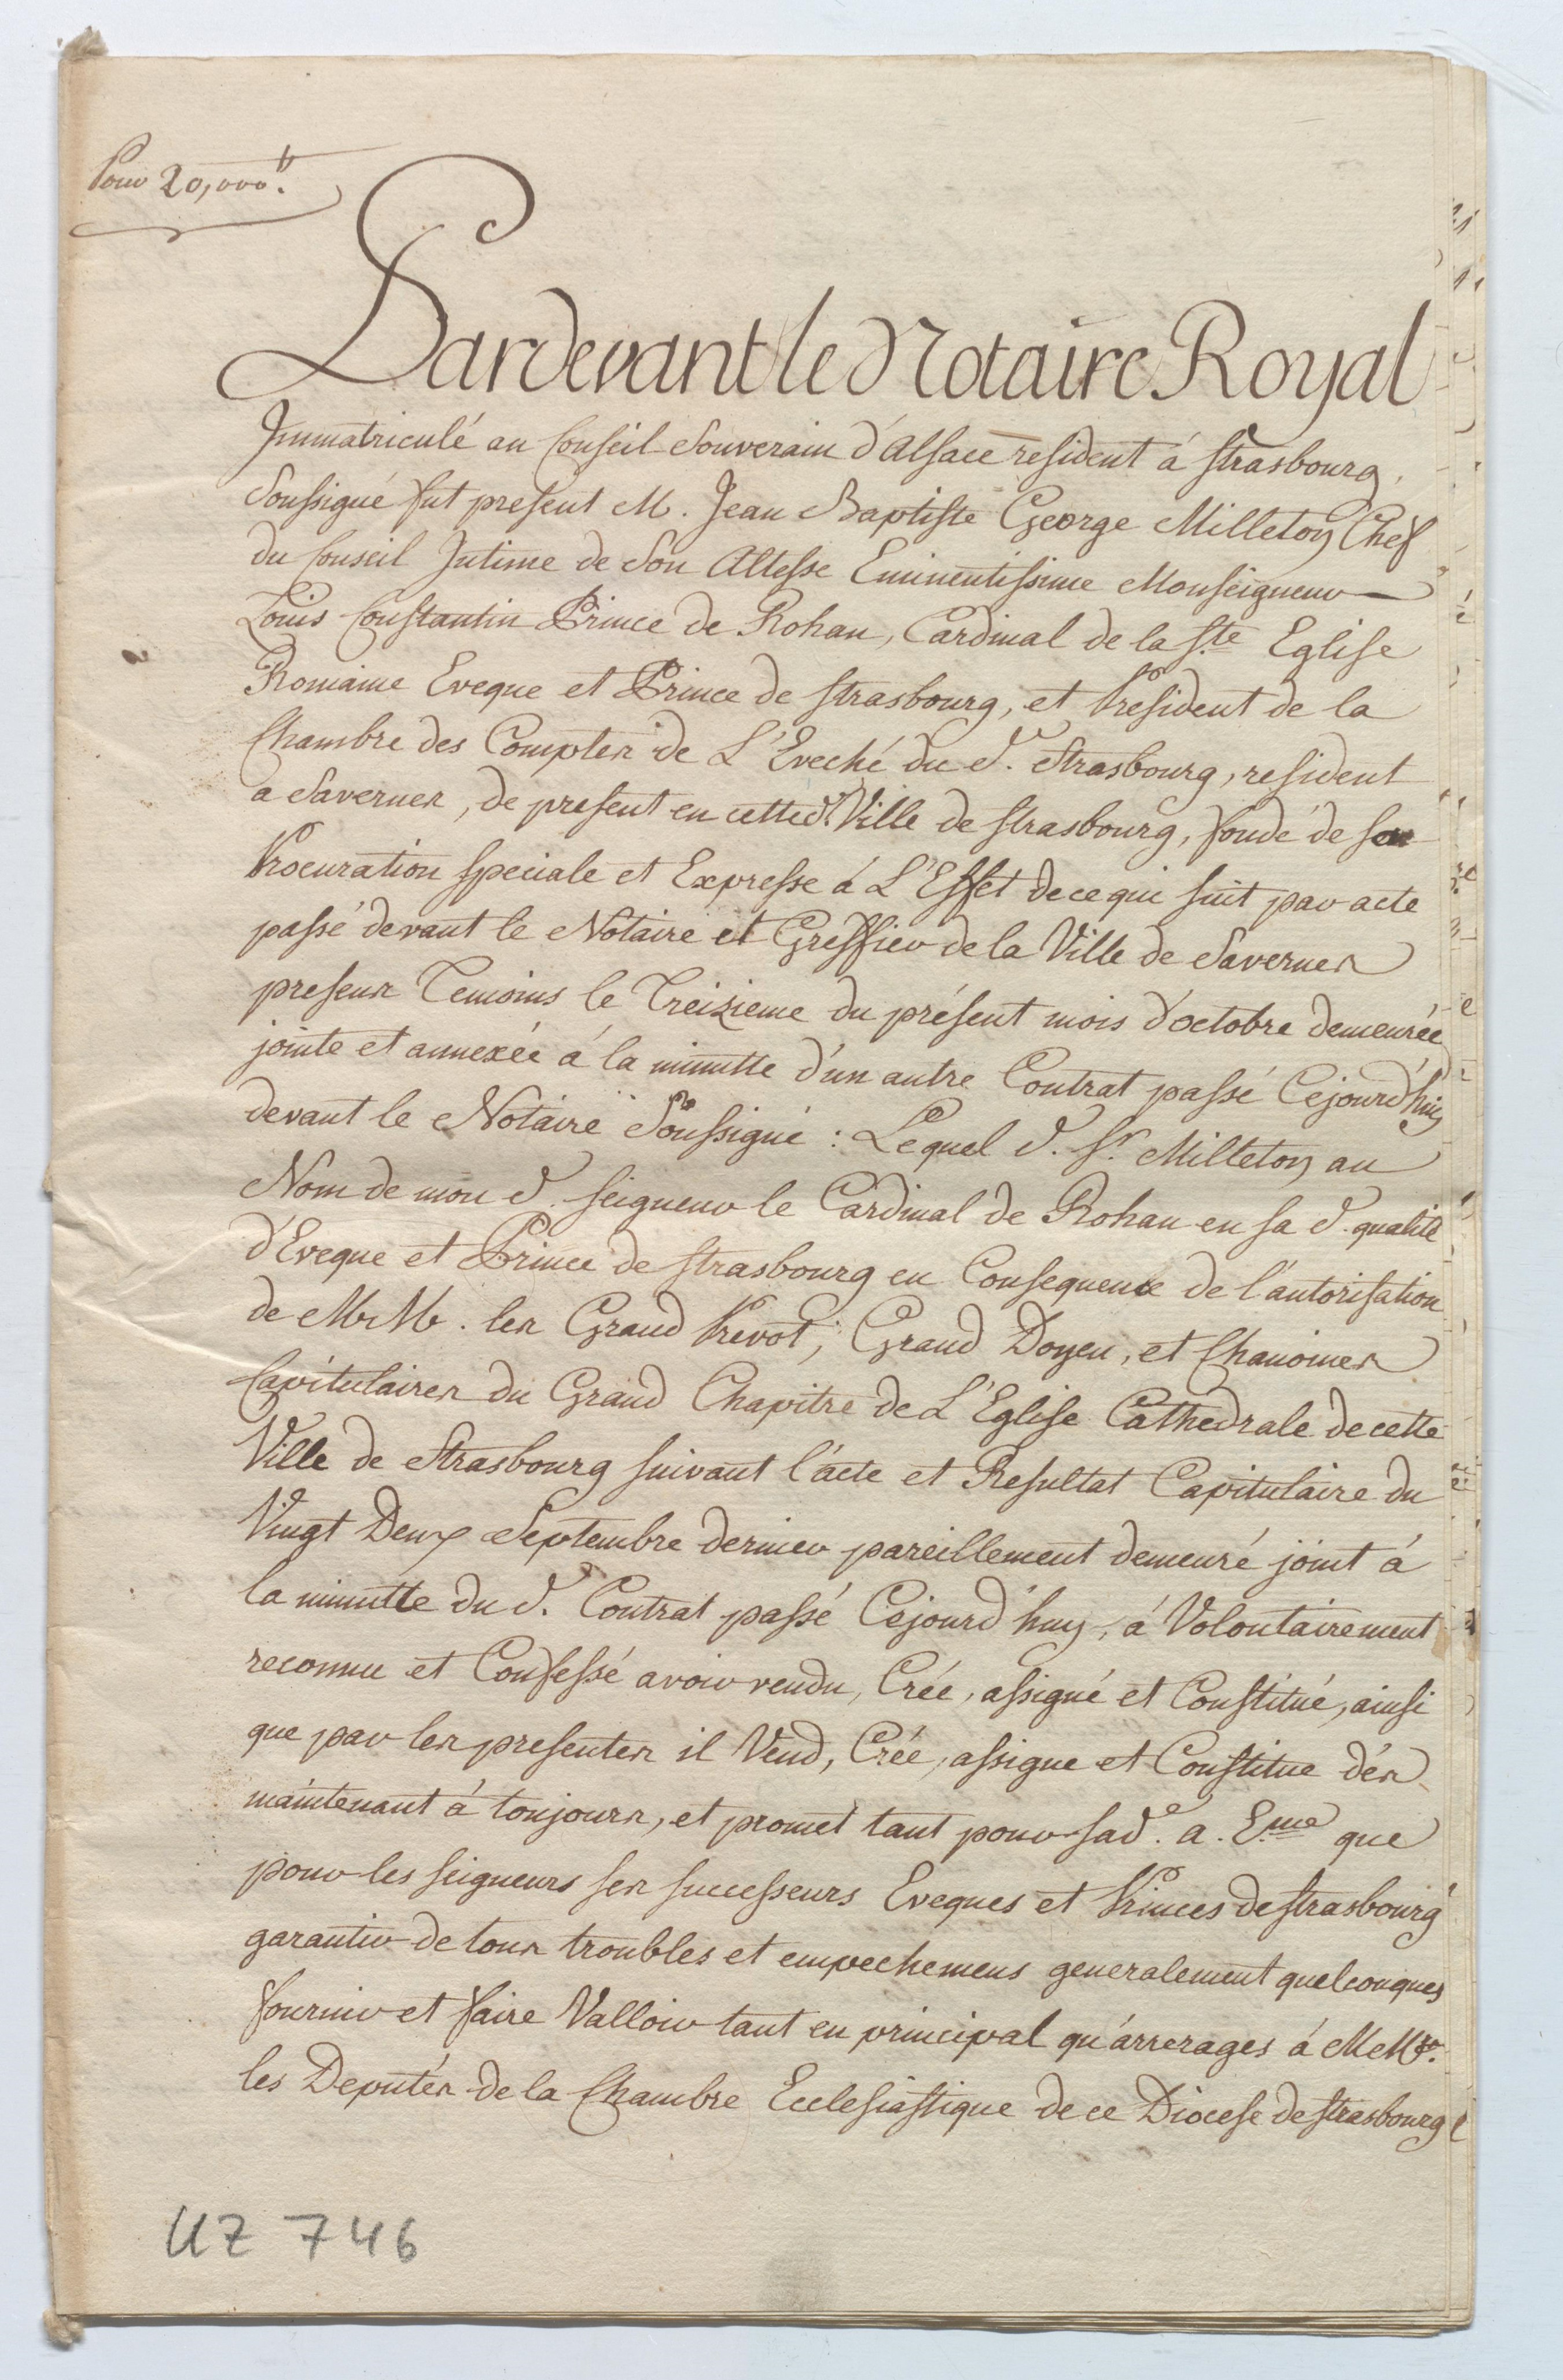 Pour 20,000.lt
Pardevant le Notaire Royal
Immatriculé au Conseil Souverain d'Alsace resident à Strasbourg,
Soussigné fut present M. Jean Baptiste George Milleton Chef
du Conseil Intime de Son Altesse Eminentissime Monseigneur
Louis Constantin Prince de Rohan, Cardinal de la Ste Eglise
Romaine Eveque et Prince de Strasbourg, et President de la
Chambre des Comptes de L'Eveché du d. Strasbourg, resident
a Savernes, de present en cette de. Ville de Strasbourg, fondé de son
Procuration speciale et Expresse á L'Effet de ce qui suit par acte
passé devant le Notaire et Greffier de la Ville de Savernes
presens Temoins le Treizieme du présent mois d'octobre demeurée
jointe et annexée á la minutte d'un autre Contrat passé Cejourd'huy
devant le Notaire Soussigné : Lequel d. Sr. Milleton au
Nom de mon d. Seigneur le Cardinal de Rohan en sa d. qualité
d'Eveque et Prince de Strasbourg en Consequence de l'autorisation
de M.M. les Grand Prevot, Grand Doyen, et Chanoines
Capitulaires du Grand Chapitre de L'Eglise Cathedrale de cette
Ville de Strasbourg suivant l'acte et Resultat Capitulaire du
Vingt Deux Septembre dernier pareillement demeuré joint á
la minutte du d. Contrat passé Cejourd'huy, á Volontairement
reconnu et Confessé avoir vendu, Crée, assigné et Constitué, ainsi
que par les presentes il Vend, Crée, assigne et Constitue dés
maintenant á toujours, et promet tant pour sad.e a. Eme que
pour les seigneurs ses successeurs Eveques et Princes de Strasbourg
garantir de tous troubles et empechemens generalement quelconques
fournir et faire Valloir tant en principal qu'arrerages á M.Mrs.
les Deputés de la Chambre Ecclesiastique de ce Diocese de Strasbourg
UZ 746